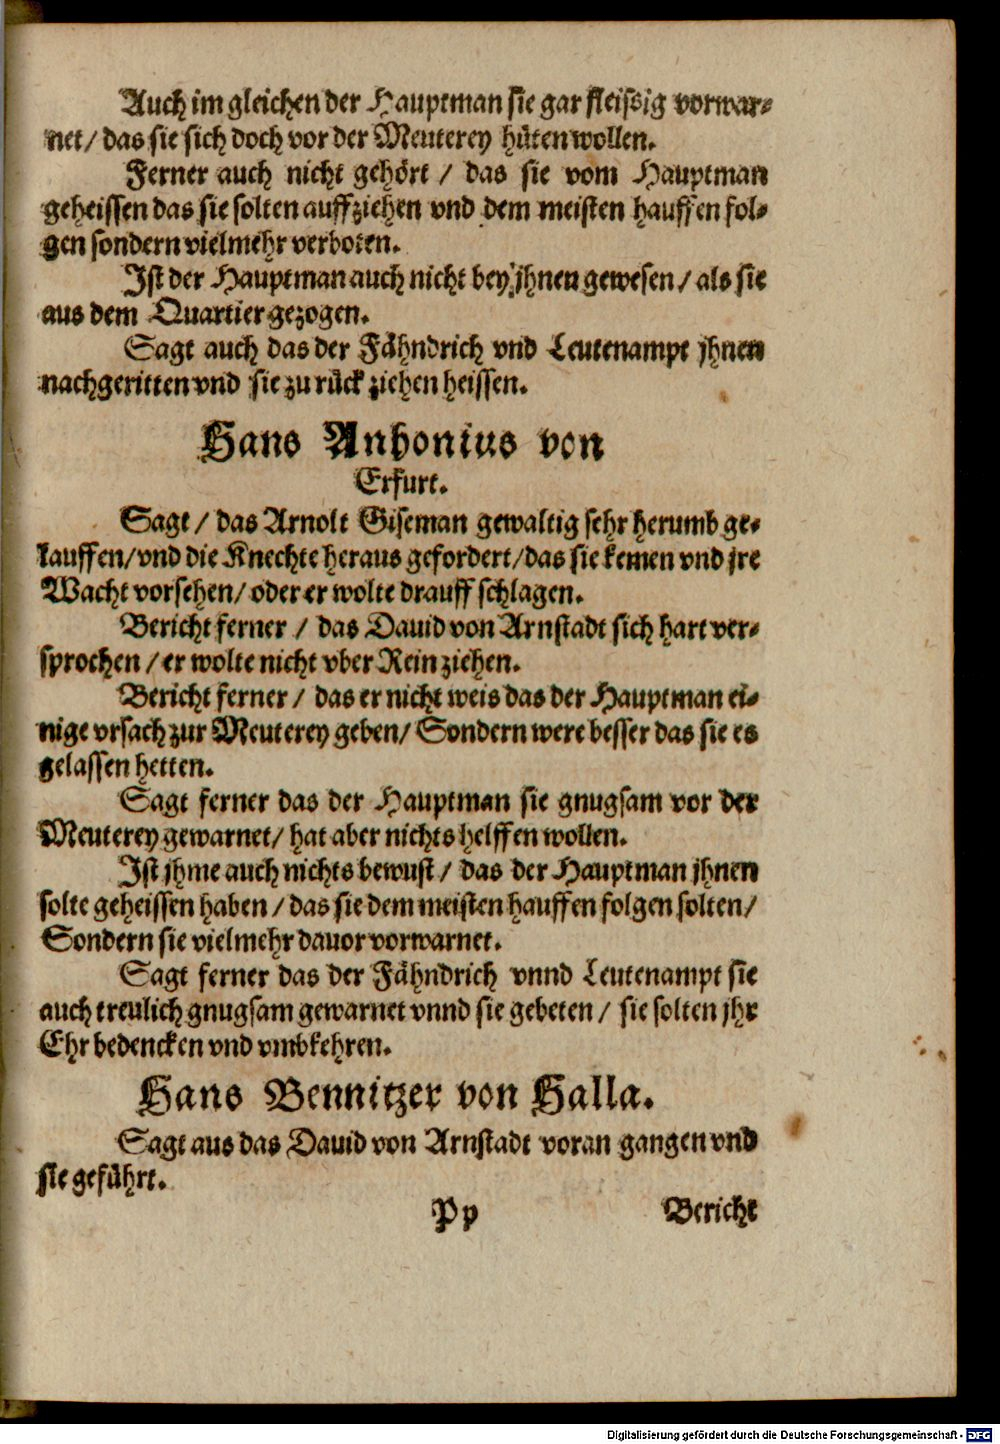 Auch im gleichen der Hauptman sie gar fleissig vorwar-
net / das sie sich doch vor der Meuterey hüten wollen.
Ferner auch nicht gehört / das sie vom Hauptman
geheissen das sie solten auffziehen vnd dem meisten hauffen fol-
gen sondern vielmehr verboten.
Ist der Hauptman auch nicht bey jhnen gewesen / als sie
aus dem Quartier gezogen.
Sagt auch das der Fähndrich vnd Leutenampt jhnen
nachgeritten vnd sie zu rück ziehen heissen.
Hans Anthonius von
Erfurt.
Sagt / das Arnolt Giseman gewaltig sehr herumb ge-
lauffen / vnd die Knechte heraus gefordert / das sie kemen vnd jre
Wacht vorsehen / oder er wolte drauff schlagen.
Bericht ferner / das Dauid von Arnstadt sich hart ver-
sprochen / er wolte nicht vber Rein ziehen.
Bericht ferner / das er nicht weis das der Hauptman ei-
nige vrsach zur Meuterey geben / Sondern were besser das sie es
gelassen hetten.
Sagt ferner das der Hauptman sie gnugsam vor der
Meuterey gewarnet / hat aber nichts helffen wollen.
Ist jhme auch nichts bewust / das der Hauptman jhnen
solte geheissen haben / das sie dem meisten hauffen folgen solten /
Sondern sie vielmehr dauor vorwarnet.
Sagt ferner das der Fähndrich vnnd Leutenampt sie
auch treulich gnugsam gewarnet vnnd sie gebeten / sie solten jhr
Ehr bedencken vnd vmbkehren.
Hans Bennitzer von Halla.
Sagt aus das Dauid von Arnstadt voran gangen vnd
sie geführt.
Pp Bericht
Digitalisierung gefördert durch die Deutsche Forschungsgemeinschaft - DFG